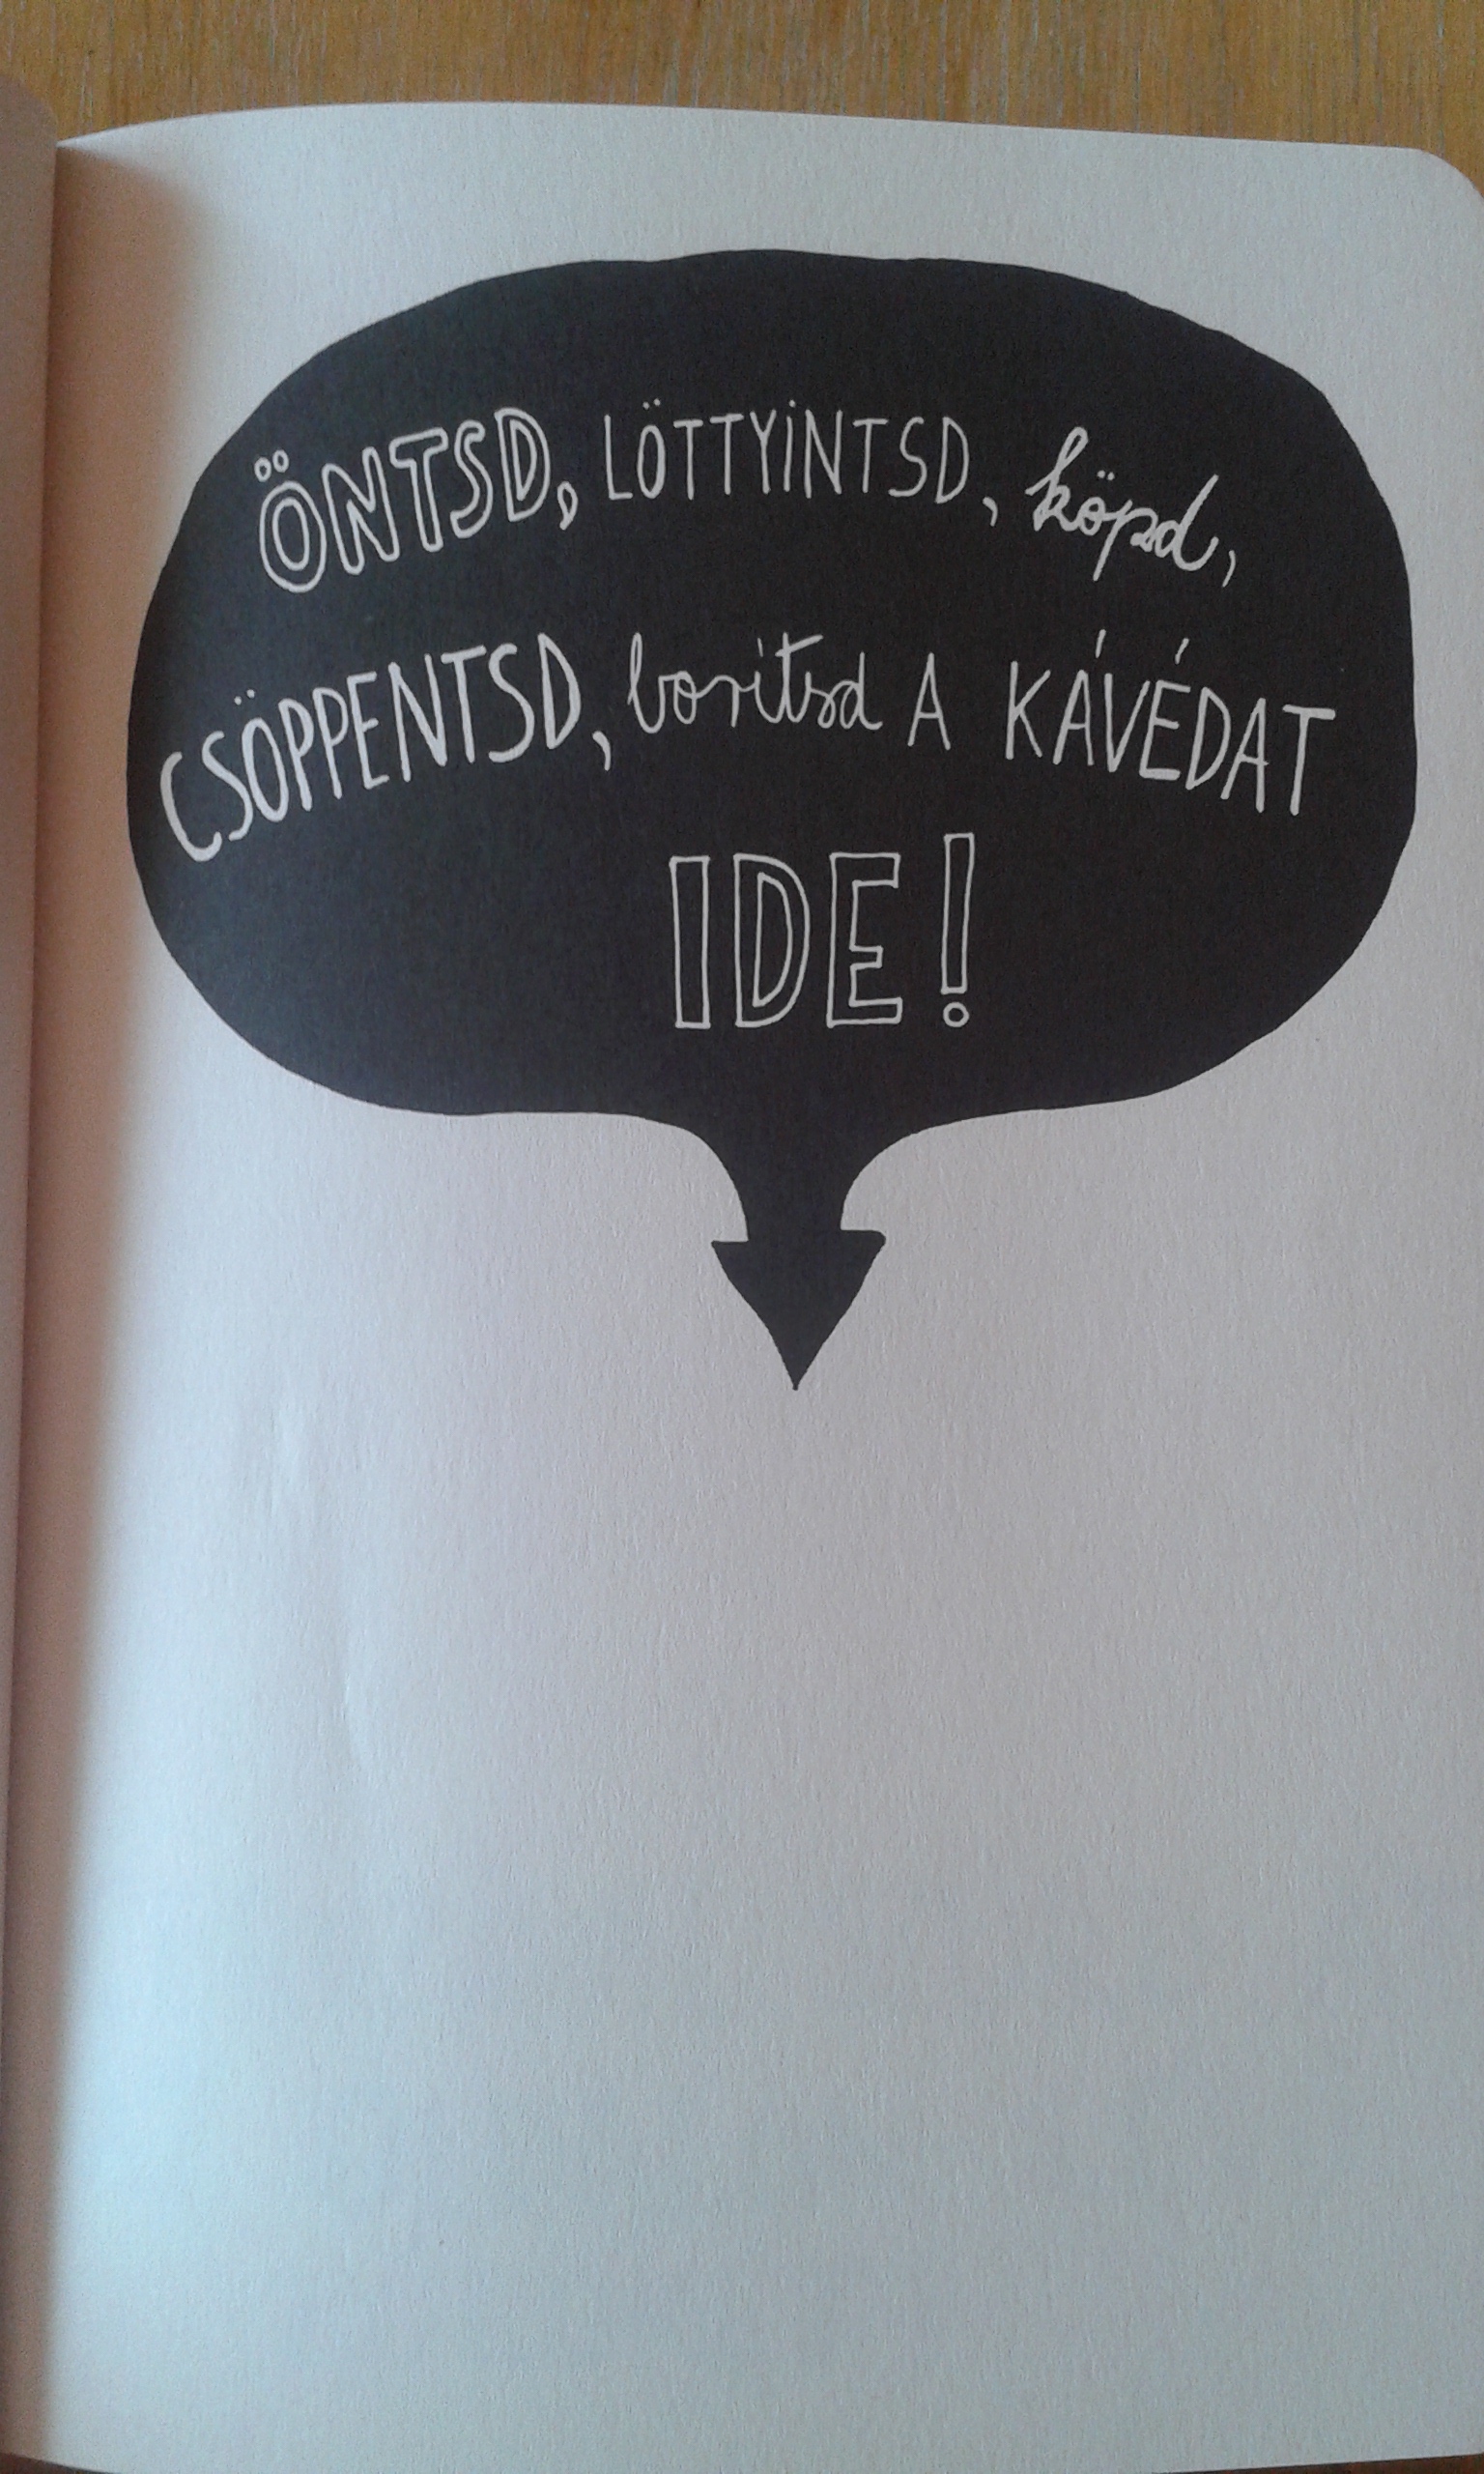 ÖNTSD, LÖTTYiNTSD, köpd,
CSÖPPENTSD, borítsd A KÁVÉDAT
IDE!